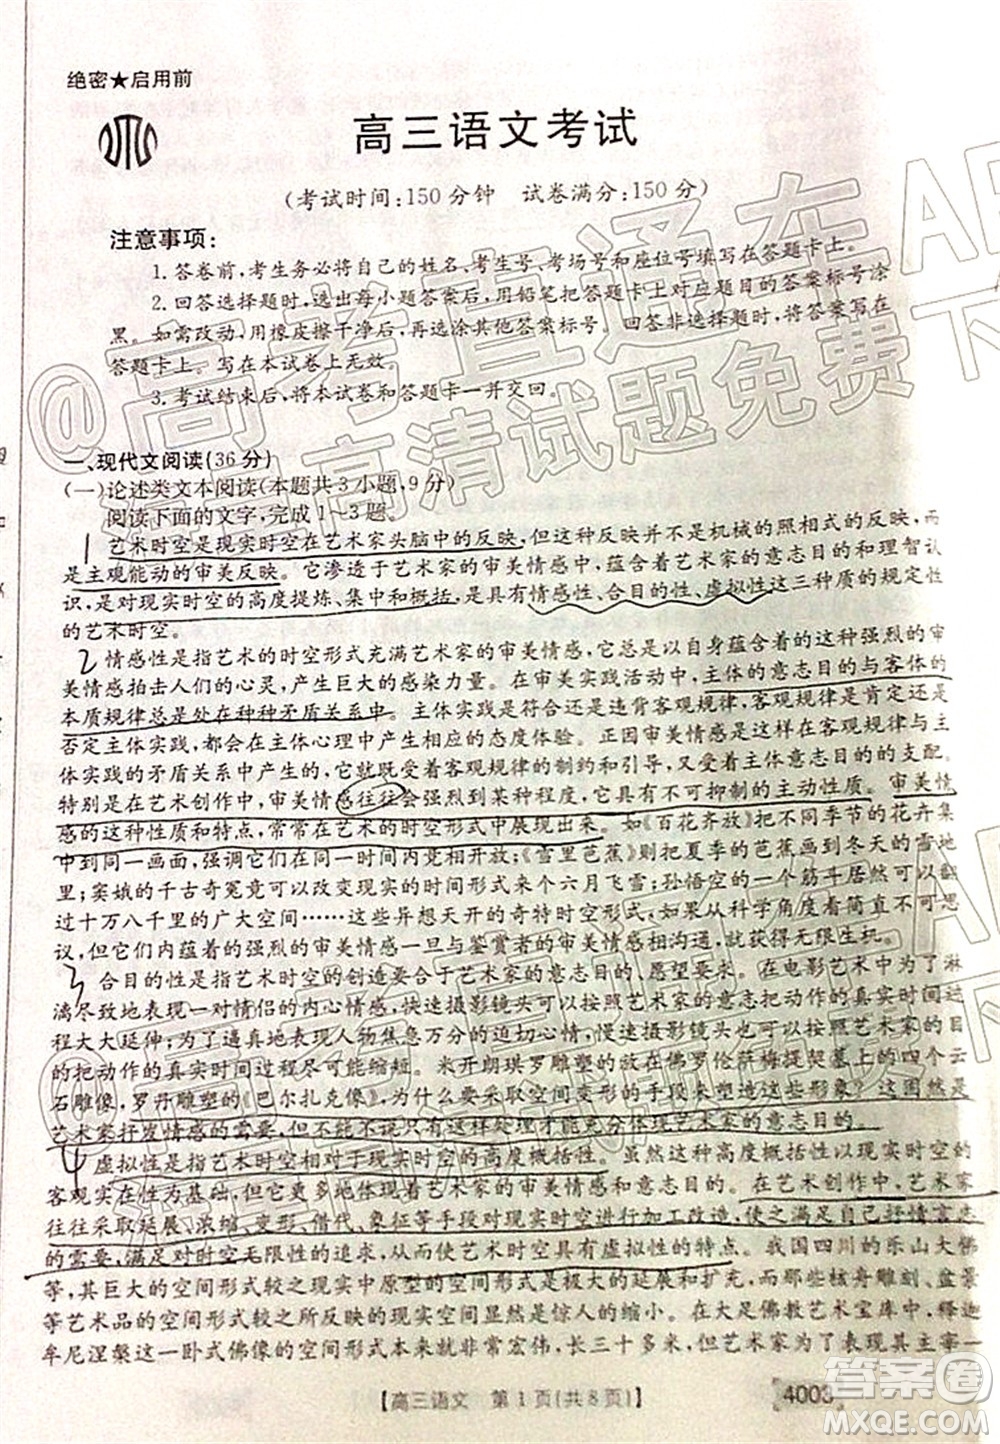 绝密★启用前
高三语文考试
(考试时间:150分钟 试卷满分:150分)
注意事项:
1.答卷前,考生务必将自己的姓名、考生号、考场号和座位号填写在答题卡上。
2.回答选择题时,选出每小题答案后,用铅笔把答题卡上对应题目的答案标号涂
黑。如需改动,用橡皮擦干净后,再选涂其他答案标号。回答非选择题时,将答案写在
答题卡上。写在本试卷上无效。
3.考试结束后,将本试卷和答题卡一并交回。
一、现代文阅读(36分)
(一)论述类文本阅读(本题共3小题,9分)
阅读下面的文字,完成1~3题。
艺术时空是现实时空在艺术家头脑中的反映,但这种反映并不是机械的照相式的反映,而
是主观能动的审美反映。它渗透于艺术家的审美情感中,蕴含着艺术家的意志目的和理智认
识,是对现实时空的高度提炼、集中和概括,是具有情感性、合目的性、虚拟性这三种质的规定性
的艺术时空。
情感性是指艺术的时空形式充满艺术家的审美情感,它总是以自身蕴含着的这种强烈的审
美情感拍击人们的心灵,产生巨大的感染力量。在审美实践活动中,主体的意志目的与客体的
本质规律总是处在种种矛盾关系中。主体实践是符合还是违背客观规律,客观规律是肯定还是
否定主体实践,都会在主体心理中产生相应的态度体验。正因审美情感是在客观规律与
主体实践的矛盾关系中产生的,所以,它既受着客观规律的制约和引导,又受着主体意志目的的支配。
特别是在艺术创作中,审美情感往往会强烈到某种程度,它具有不可抑制的主动性质。审美情
感的这种性质和特点,常常在艺术的时空形式中展现出来。如《百花齐放》把不同季节的花卉集
中到同一画面,强调它们在同一时间内竞相开放;《雪里芭蕉》则把夏季的芭蕉画到冬天的雪地
里;窦娥的千古奇冤竟可以改变现实的时间形式来个六月飞雪;孙悟空的一个筋斗居然可以翻
过十万八千里的广大空间……这些异想天开的奇特时空形式,尽管从科学角度看简直不可思
议,但它们内蕴着的强烈的审美情感一旦与鉴赏者的审美情感相沟通,就获得无限生机。
合目的性是指艺术时空的创造要合于艺术家的意志目的、愿望要求。在电影艺术中,为了淋
漓尽致地表现一对情侣的内心情感,快速摄影镜头可以按照艺术家的意志把动作的真实时间过
程大大延伸;为了逼真地表现人物焦急万分的迫切心情,慢速摄影镜头可以按照艺术家的目
的把动作的真实时间过程尽可能缩短。米开朗琪罗雕塑的放在佛罗伦萨梅提契墓上的四个云
石雕像,罗丹雕塑的《巴尔扎克像》,为什么要使用残缺的手段来处理这些形象?这固然是
艺术家抒发情感的需要,但不能不说只有这样处理才能充分体现艺术家的意志目的。
虚拟性是指艺术时空相对于现实时空的高度概括性。虽然这种高度概括性必须以现实的
客观实在性为基础,但它更多地体现着艺术家的审美情感和意志目的。在艺术创作中,艺术家
往往采取延展、浓缩、变形、借代、象征等手段对现实时空进行加工改造,使之满足自己抒情言志
的需要,满足对时空无限性的追求,从而使艺术时空具有虚拟的特点。我国四川的乐山大佛
等,其巨大的空间形式较之现实中原型的空间形式是极大的延展和扩充,而核舟雕刻、盆景
等艺术品的空间形式较之所反映的现实空间显然是惊人的缩小。在大足佛教艺术宝库中,释迦
牟尼涅槃这一卧式佛像的空间形式本来就非常宏伟,长三十多米,但艺术家为了表现释迦牟尼
【高三语文 第1页(共8页)】
4003
@高考直通车
答案圈
MXQE.COM